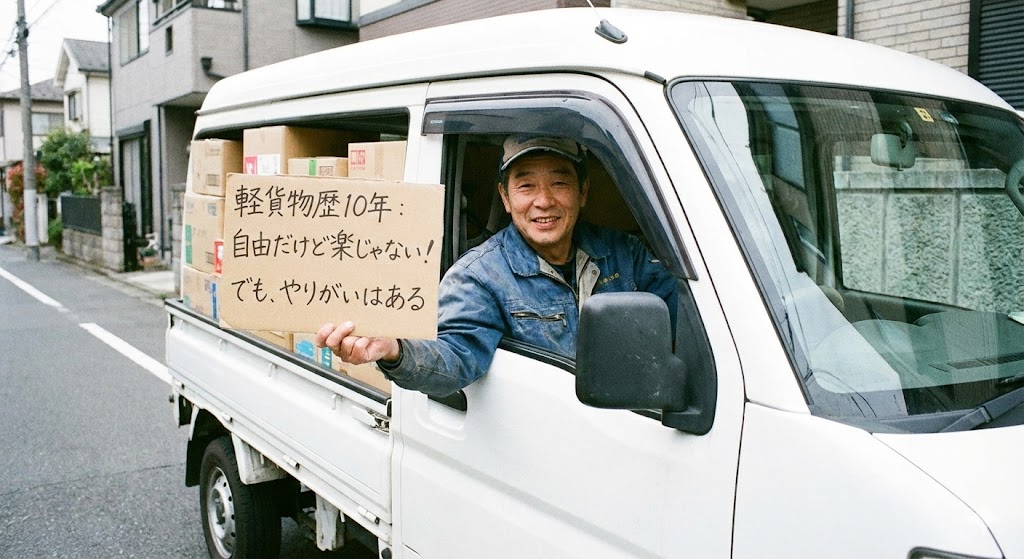 軽貨物歴10年:
自由だけど楽じゃない!
でも、やりがいはある